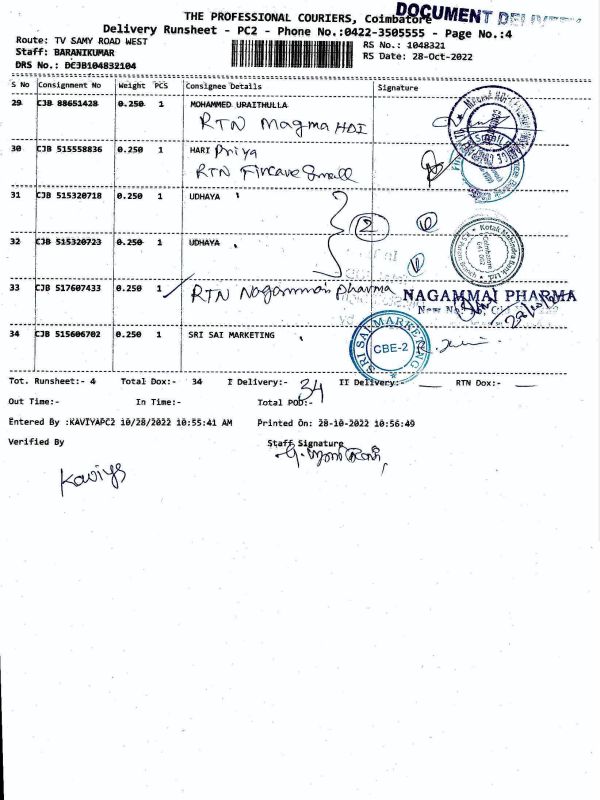 DOCUMENT DELIVERY
THE PROFESSIONAL COURIERS, Coimbatore
Delivery Runsheet - PC2 - Phone No.:0422-3505555 - Page No.:4
Route: TV SAMY ROAD WEST
RS No.: 1048321
Staff: BARANIKUMAR
RS Date: 28-Oct-2022
DRS No.: DCJB104832104
S No Consignment No Weight PCS Consignee Details Signature
29 CJB 88651428 0.250 1 MOHAMMED URAITHULLA
RTN Magma HDI
30 CJB 515558836 0.250 1 HARI Priya
RTN Fincave Small
31 CJB 515320718 0.250 1 UDHAYA
2
32 CJB 515320723 0.250 1 UDHAYA
Kotak Mahindra Bank Ltd
Coimbatore
641 002
33 CJB 517607433 0.250 1 RTN Nagammai Pharma
NAGAMMAI PHARMA
34 CJB 515606702 0.250 1 SRI SAI MARKETING
SRI SAI MARKETING
CBE-2
Tot. Runsheet:- 4 Total Dox:- 34 I Delivery:- 34 II Delivery:- RTN Dox:-
Out Time:- In Time:- Total POD:-
Entered By :KAVIYAPC2 10/28/2022 10:55:41 AM Printed On: 28-10-2022 10:56:49
Verified By Staff Signature
Kaviya